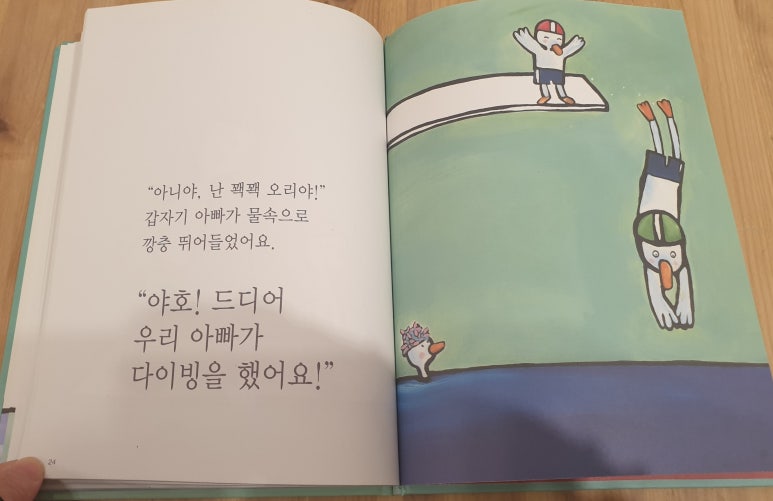 “아니야, 난 꽥꽥 오리야!”
갑자기 아빠가 물속으로
깡충 뛰어들었어요.
“야호! 드디어
우리 아빠가
다이빙을 했어요!”
24